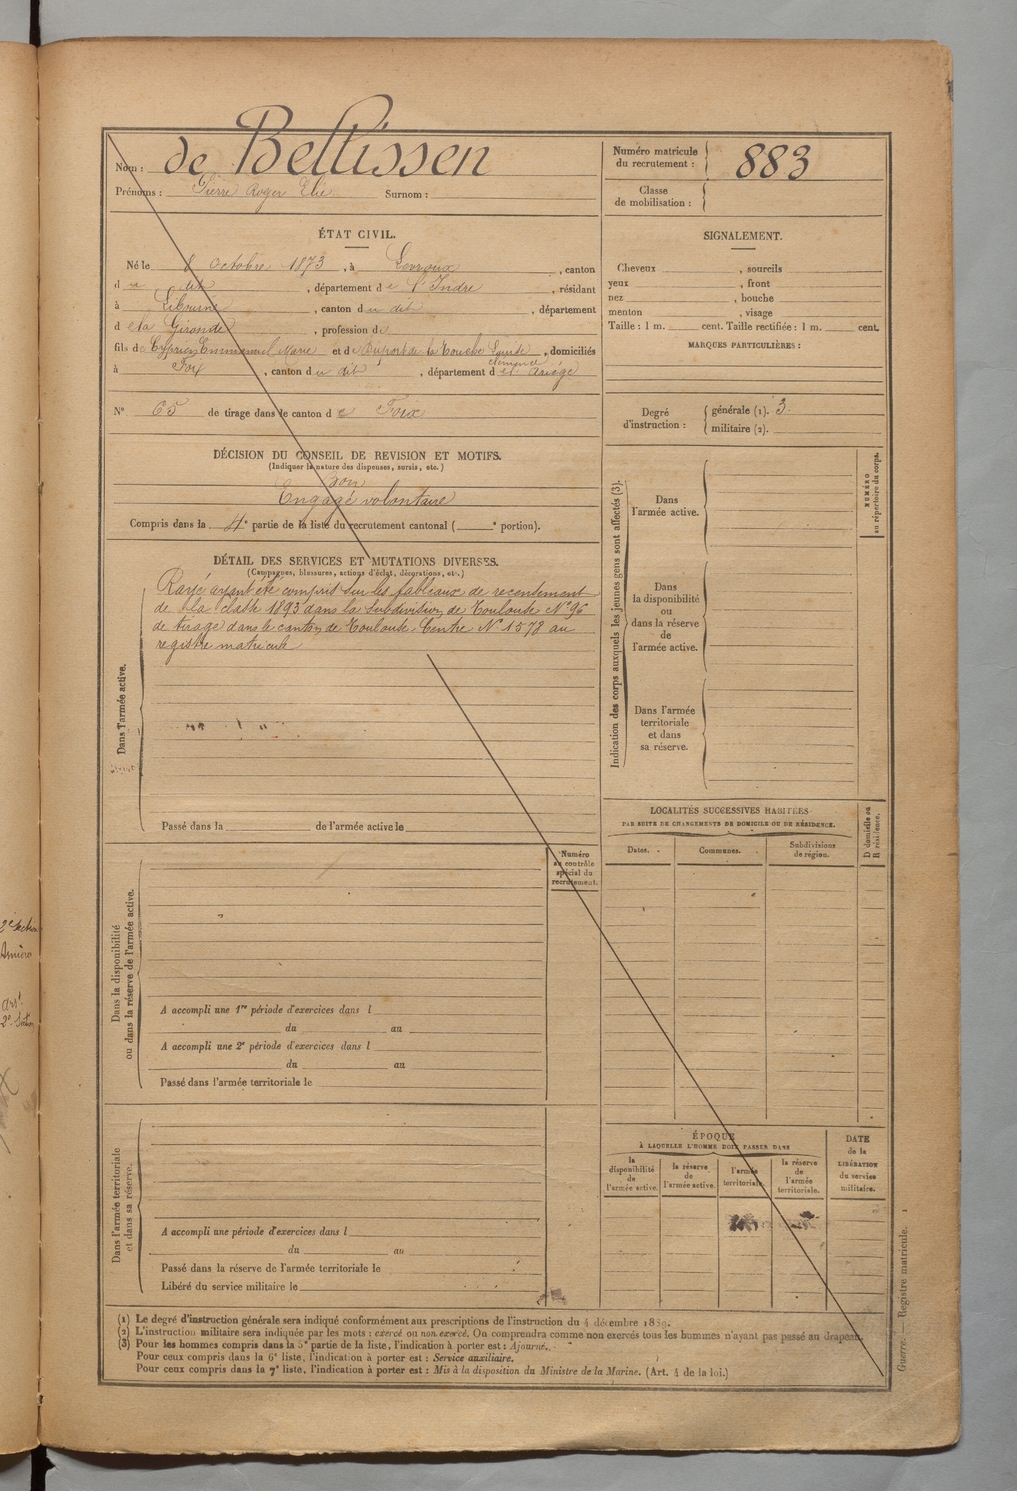 Nom : de Bellissen
Prénoms : Pierre Roger Elie Surnom :
Numéro matricule du recrutement : 883
Classe de mobilisation :
ÉTAT CIVIL.
Né le 8 Octobre 1873, à Levroux, canton
du dit, département de l'Indre, résidant
à Libourne, canton du dit, département
de la Gironde, profession de
fils de Cyprien Emmanuel Marie et de Duport de la Touche Louise Clémence, domiciliés
à Foix, canton du dit, département de l' Ariège
N° 65 de tirage dans le canton de Foix
SIGNALEMENT.
Cheveux , sourcils
yeux , front
nez , bouche
menton , visage
Taille : 1 m. cent. Taille rectifiée : 1 m. cent.
MARQUES PARTICULIÈRES :
Degré d'instruction : générale (1). 3.
militaire (2).
DÉCISION DU CONSEIL DE REVISION ET MOTIFS.
(Indiquer la nature des dispenses, sursis, etc.)
Bon
Engagé volontaire
Compris dans la 4e partie de la liste du recrutement cantonal ( e portion).
DÉTAIL DES SERVICES ET MUTATIONS DIVERSES.
(Campagnes, blessures, actions d'éclat, décorations, etc.)
Dans l'armée active.
Rayé ayant été compris sur les tableaux de recensement
de la classe 1893 dans la subdivision de Toulouse N° 96
de tirage dans le canton de Toulouse-Centre N° 1578 au
registre matricule
Passé dans la de l'armée active le
Indication des corps auxquels les jeunes gens sont affectés (3).
Dans l'armée active.
Dans la disponibilité ou dans la réserve de l'armée active.
Dans l'armée territoriale et dans sa réserve.
NUMÉRO au répertoire du corps.
LOCALITÉS SUCCESSIVES HABITÉES
PAR SUITE DE CHANGEMENTS DE DOMICILE OU DE RÉSIDENCE.
Dates. Communes. Subdivisions de région.
D domicile ou R résidence.
Numéro au contrôle spécial du recrutement.
Dans la disponibilité ou dans la réserve de l'armée active.
A accompli une 1re période d'exercices dans l
du au
A accompli une 2e période d'exercices dans l
du au
Passé dans l'armée territoriale le
Dans l'armée territoriale et dans sa réserve.
A accompli une période d'exercices dans l
du au
Passé dans la réserve de l'armée territoriale le
Libéré du service militaire le
ÉPOQUE
À LAQUELLE L'HOMME DOIT PASSER DANS
la disponibilité de l'armée active.
la réserve de l'armée active.
l'armée territoriale.
la réserve de l'armée territoriale.
DATE de la LIBÉRATION du service militaire.
(1) Le degré d'instruction générale sera indiqué conformément aux prescriptions de l'instruction du 4 décembre 1889.
(2) L'instruction militaire sera indiquée par les mots : exercé ou non exercé. On comprendra comme non exercés tous les hommes n'ayant pas passé au drapeau.
(3) Pour les hommes compris dans la 5e partie de la liste, l'indication à porter est : Ajourné.
Pour ceux compris dans la 6e liste, l'indication à porter est : Service auxiliaire.
Pour ceux compris dans la 7e liste, l'indication à porter est : Mis à la disposition du Ministre de la Marine. (Art. 4 de la loi.)
Guerre. — Registre matricule. 1